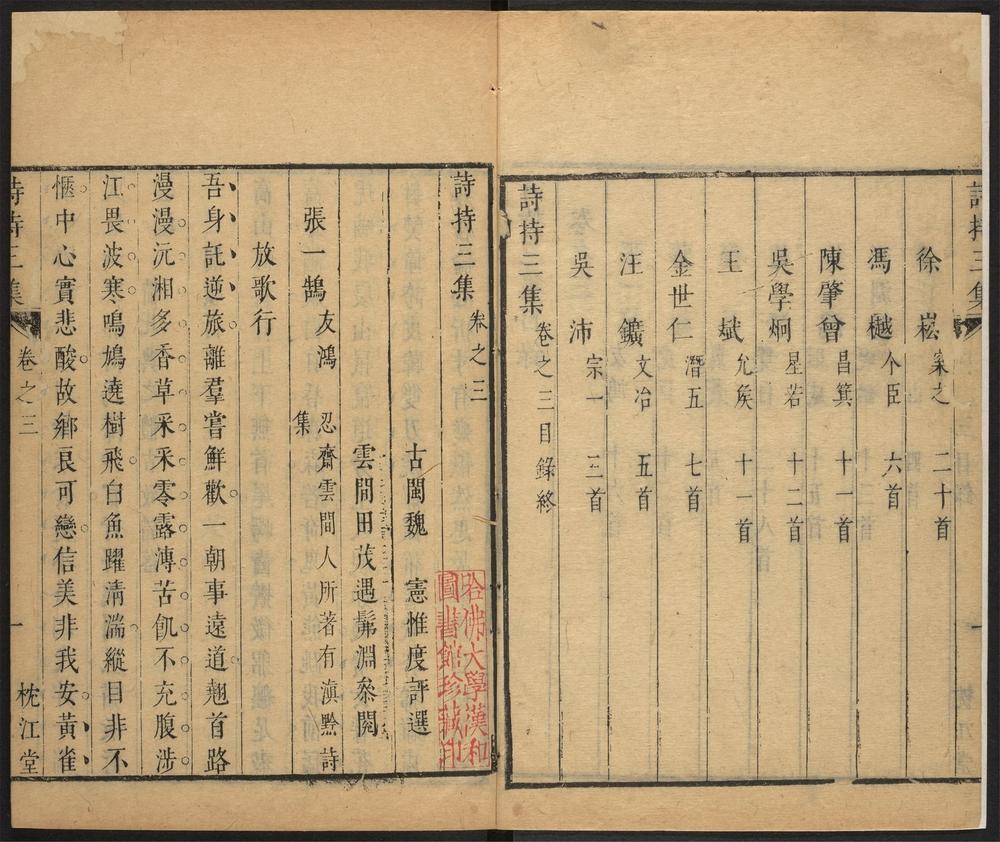 詩持三集
徐崧 枀之 二十首
馮樾 个臣 六首
陳肇曾 昌箕 十一首
吳學炯 星若 十二首
王斌 允矦 十一首
金世仁 潛五 七首
汪鑛 文冶 五首
吳沛 宗一 三首
詩持三集 卷之三目錄終
詩持三集 卷之三
古閩魏 憲惟度評選
雲間田茂遇髴淵叅閱
張一鵠 友鴻 忍齋雲間人所著有滇黔詩集
放歌行
吾身託逆旅離羣嘗鮮歡一朝事遠道翹首路
漫漫沅湘多香草采采零露漙苦飢不充腹涉
江畏波寒鳴鳩遶樹飛白魚躍清湍縱目非不
愜中心實悲酸故鄉良可戀信美非我安黃雀
詩持三集 卷之三 一 枕江堂
哈佛大學漢和
圖書館珍藏印